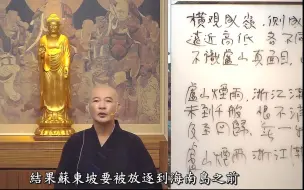 橫觀成嶺,側成
遠近高低各不同
不識廬山真面目
廬山煙雨浙江潮
未到千般恨不消
廬山煙雨浙江潮
結果蘇東坡要被放逐到海南島之前